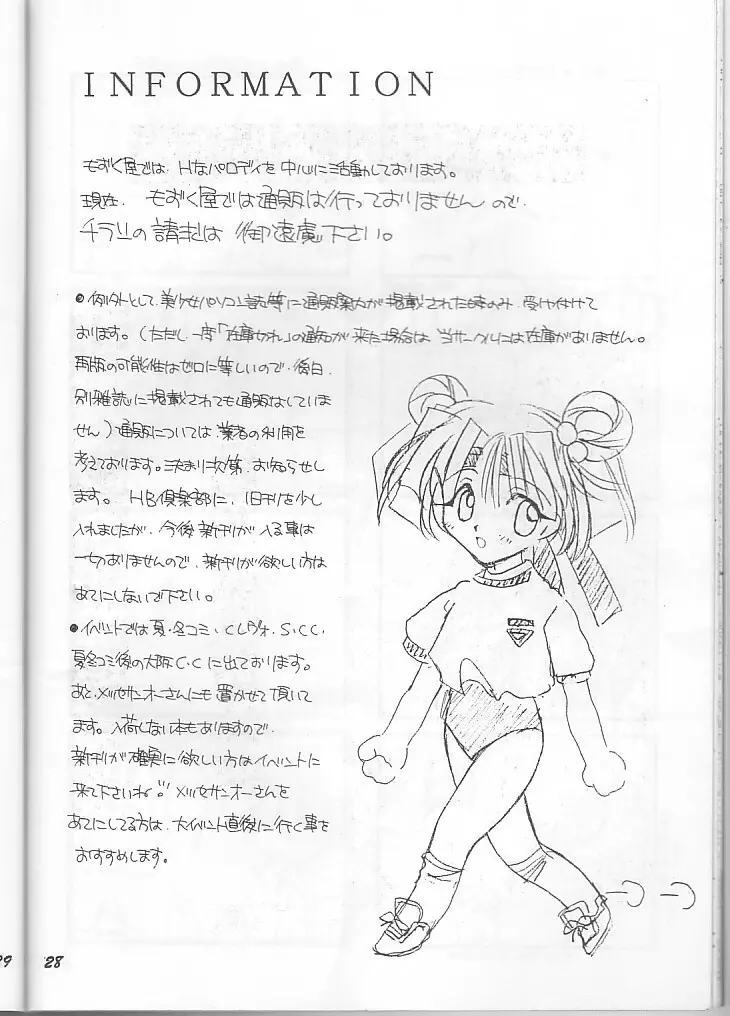 INFORMATION
もずく屋では、Hなパロディを中心に活動しております。
現在、もずく屋では通販は行っておりませんので、
チラシの請求は御遠慮下さい。
●例外として、美少女パソコン誌等に通販案内が掲載された時のみ、受け付けて
おります。(ただし、一度「在庫切れ」の通知が来た場合は、当サークルには在庫がありません。
再販の可能性はゼロに等しいので、後日、
別雑誌に掲載されても通販はしていま
せん)通販については、業者の利用を
考えております。決まり次第、お知らせし
ます。HB倶楽部に、旧刊を少し
入れましたが、今後新刊が入る事は
一切ありませんので、新刊が欲しい方は
あてにしないで下さい。
●イベントでは夏・冬コミ、Cレヴォ、S・C・C、
夏冬コミ後の大阪C・Cに出ております。
あと、メッセサンオーさんにも置かせて頂いて
ます。入荷しない本もありますので、
新刊が確実に欲しい方はイベントに
来て下さいね。メッセサンオーさんを
あてにしてる方は、大イベント直後に行く事を
おすすめします。
29
28